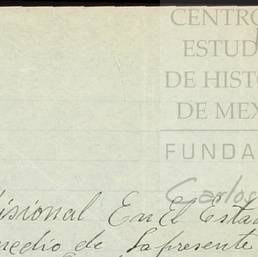 CENTRO
ESTUD
DE HISTO
DE MEX
FUNDA
Carlos
isional En El Esta
medio de La presente